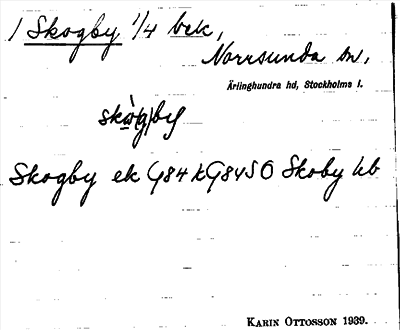 1 Skogby 1/4 bek,
Norrsunda sn,
Ärlinghundra hd, Stockholms l.
skò(g)by
Skogby ek G84 k G84 SO Skoby kb
KARIN OTTOSSON 1939.